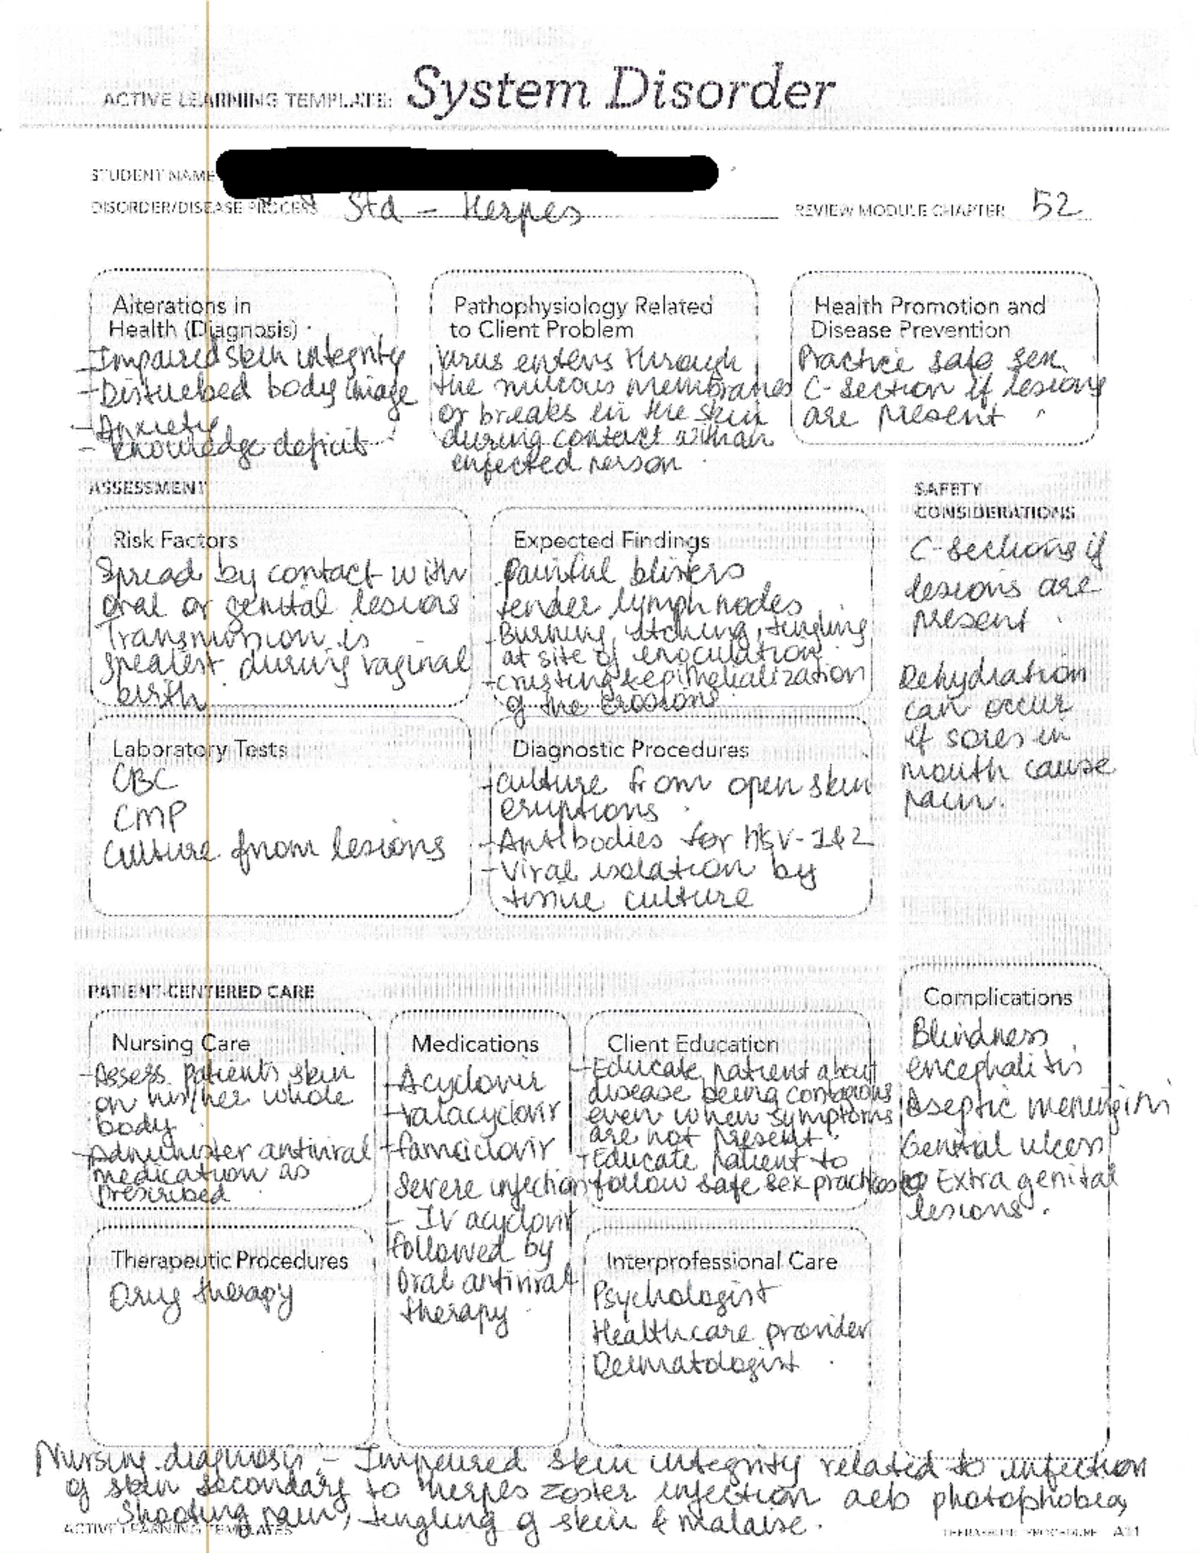 ACTIVE LEARNING TEMPLATE: System Disorder
STUDENT NAME
DISORDER/DISEASE PROCESS Std - Herpes REVIEW MODULE CHAPTER 52
Alterations in
Health (Diagnosis)
- Impaired skin integrity
- Disturbed body image
- Anxiety
- knowledge deficit
Pathophysiology Related
to Client Problem
Virus enters through
the mucous membranes
or breaks in the skin
during contact with an
infected person
Health Promotion and
Disease Prevention
Practice safe sex
C-section if lesions
are present
ASSESSMENT
Risk Factors
Spread by contact with
oral or genital lesions
Transmission is
greatest during vaginal
birth
Expected Findings
Painful blisters
tender lymph nodes
- Burning, itching, tingling
at site of inoculation
- crusting & epithelialization
of the erosions
SAFETY
CONSIDERATIONS
C-sections if
lesions are
present
Dehydration
can occur
if sores in
mouth cause
pain.
Laboratory Tests
CBC
CMP
Culture from lesions
Diagnostic Procedures
- culture from open skin
eruptions
- Antibodies for HSV-1&2
- Viral isolation by
tissue culture
PATIENT-CENTERED CARE
Nursing Care
- Assess patients skin
on his/her whole
body
- Administer antiviral
medication as
prescribed
Medications
- Acyclovir
- valacyclovir
- famciclovir
Severe infection
- IV acyclovir
followed by
Oral antiviral
therapy
Client Education
- Educate patient about
disease being contagious
even when symptoms
are not present
- Educate patient to
follow safe sex practices
Complications
Blindness
encephalitis
Aseptic meningitis
Genital ulcers
Extra genital
lesions.
Therapeutic Procedures
Drug therapy
Interprofessional Care
Psychologist
Healthcare provider
Dermatologist
Nursing diagnosis - Impaired skin integrity related to infection
of skin secondary to herpes zoster infection aeb photophobia,
shooting pain, tingling of skin & malaise.
ACTIVE LEARNING TEMPLATES THERAPEUTIC PROCEDURE A11